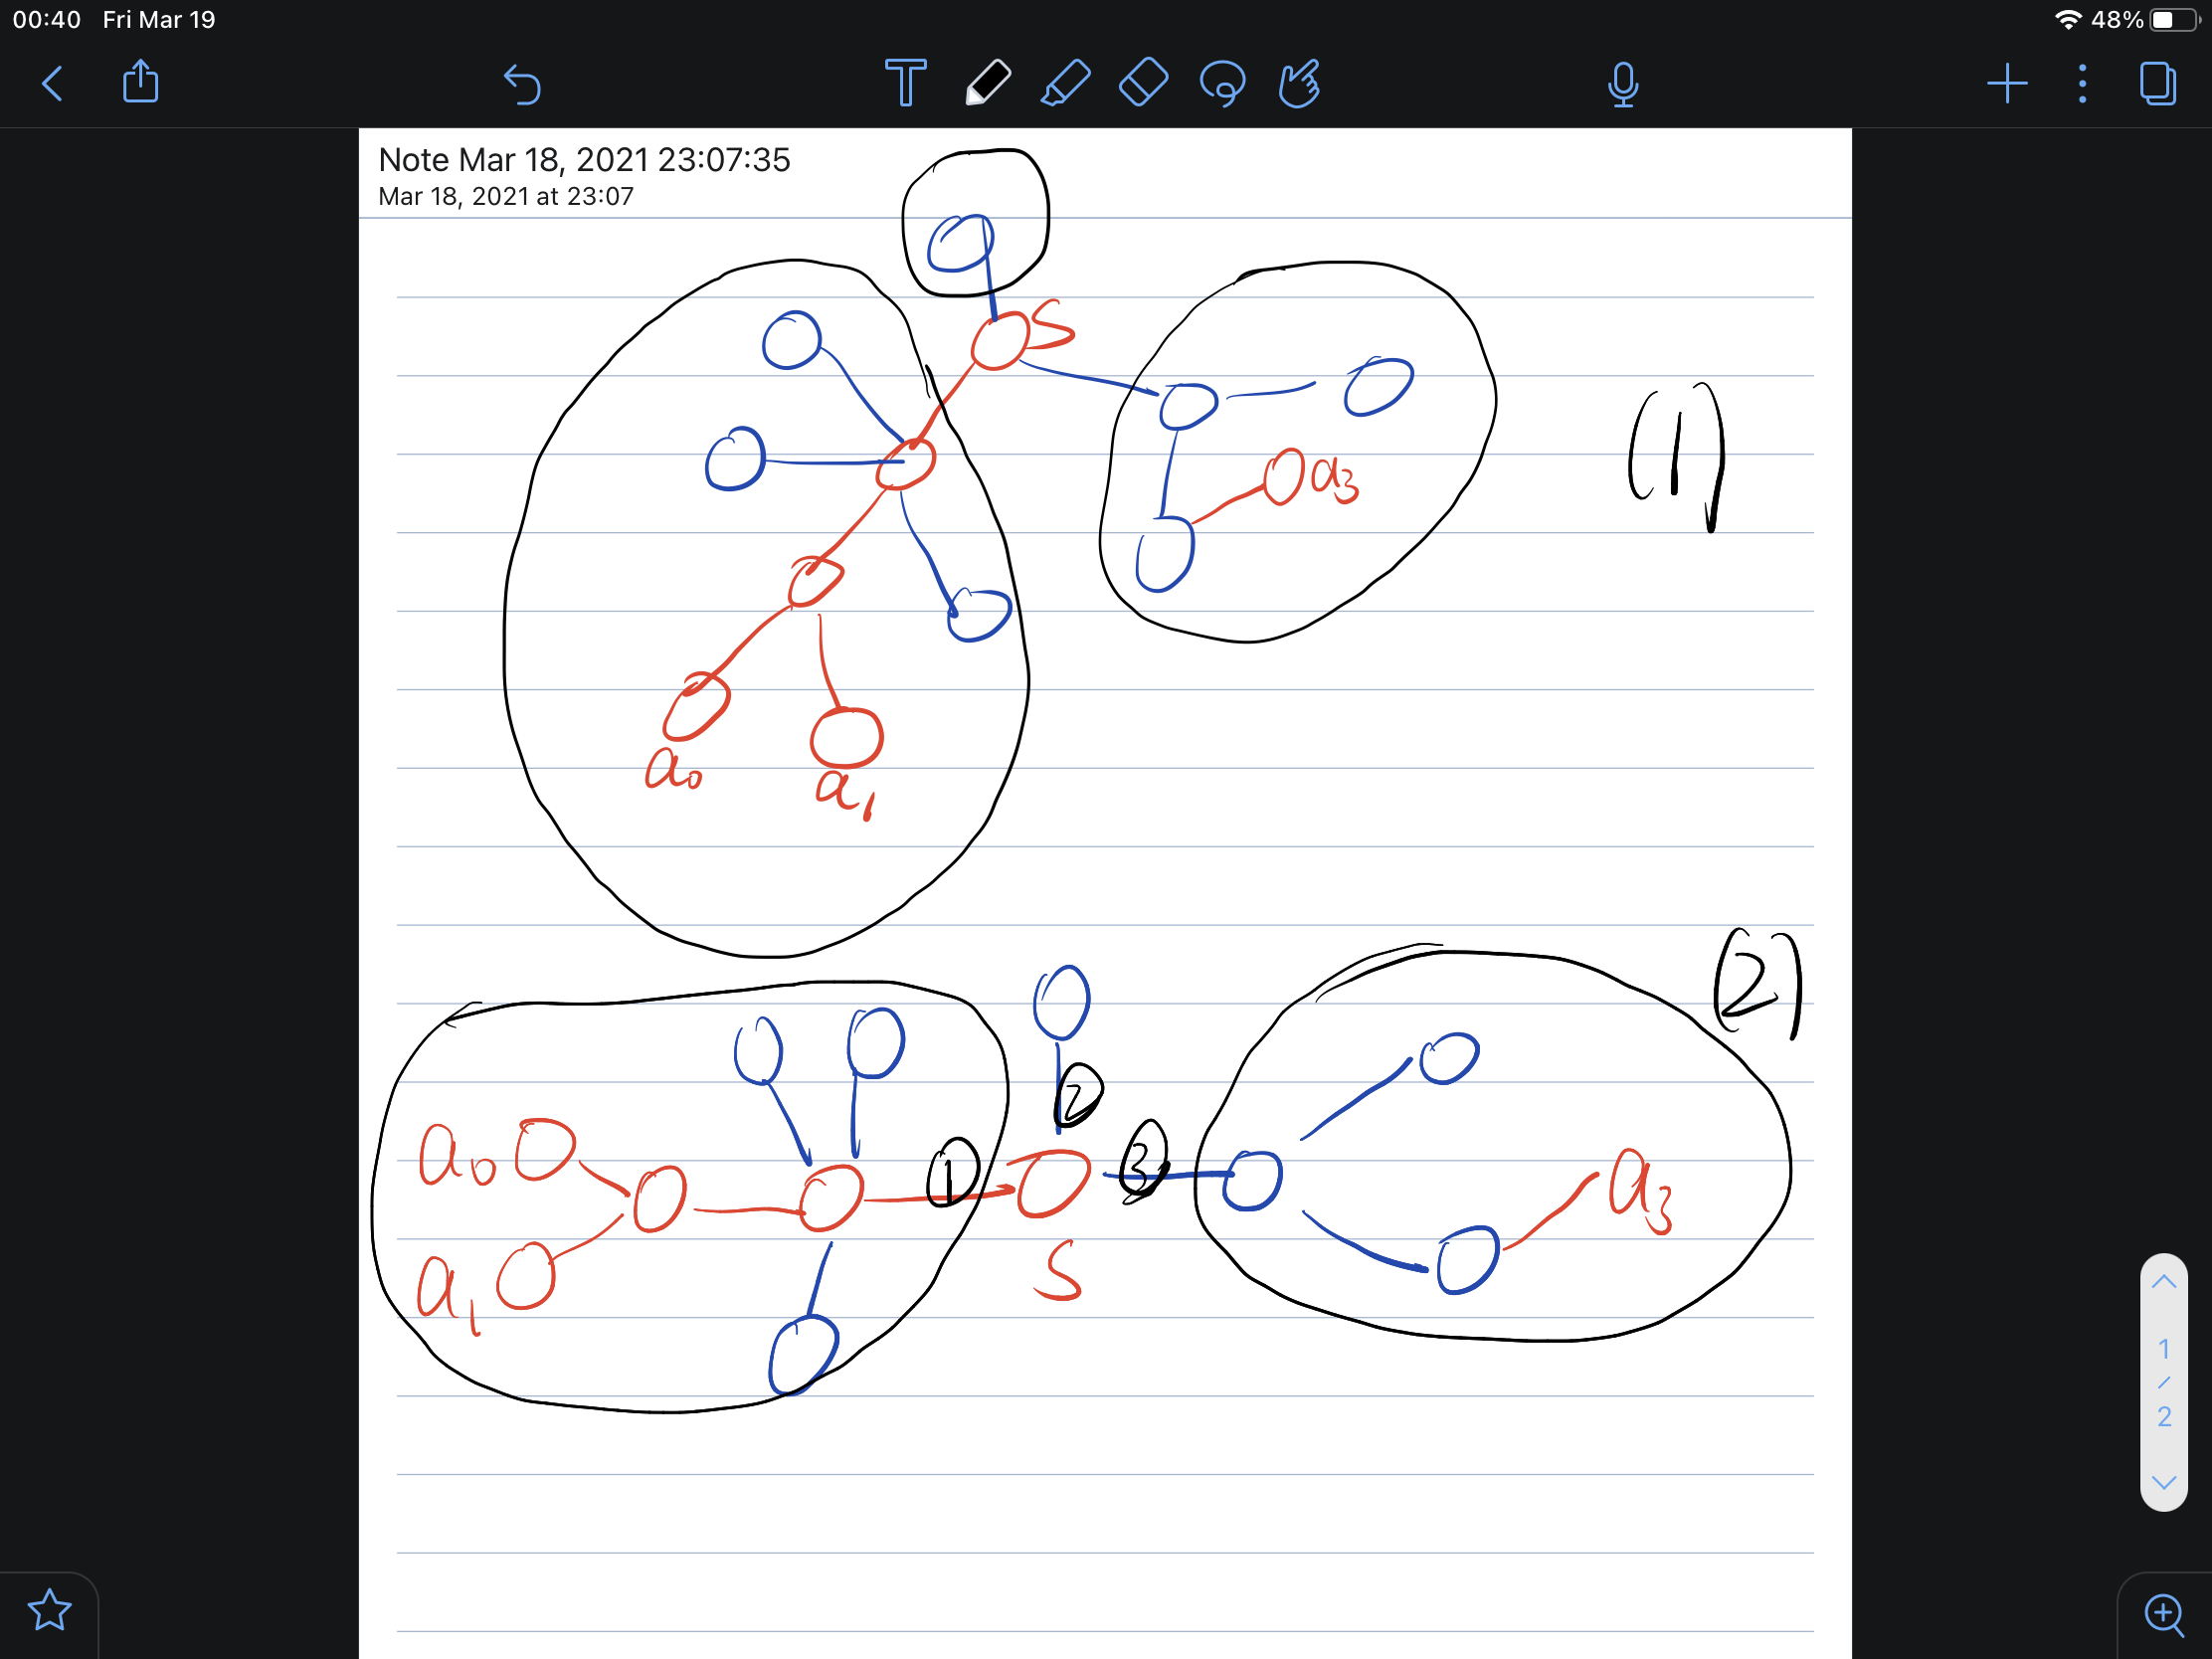 00:40 Fri Mar 19
48%
Note Mar 18, 2021 23:07:35
Mar 18, 2021 at 23:07
S
(1)
a3
a0
a1
(2)
2
a0
1
3
a3
a1
S
1
/
2